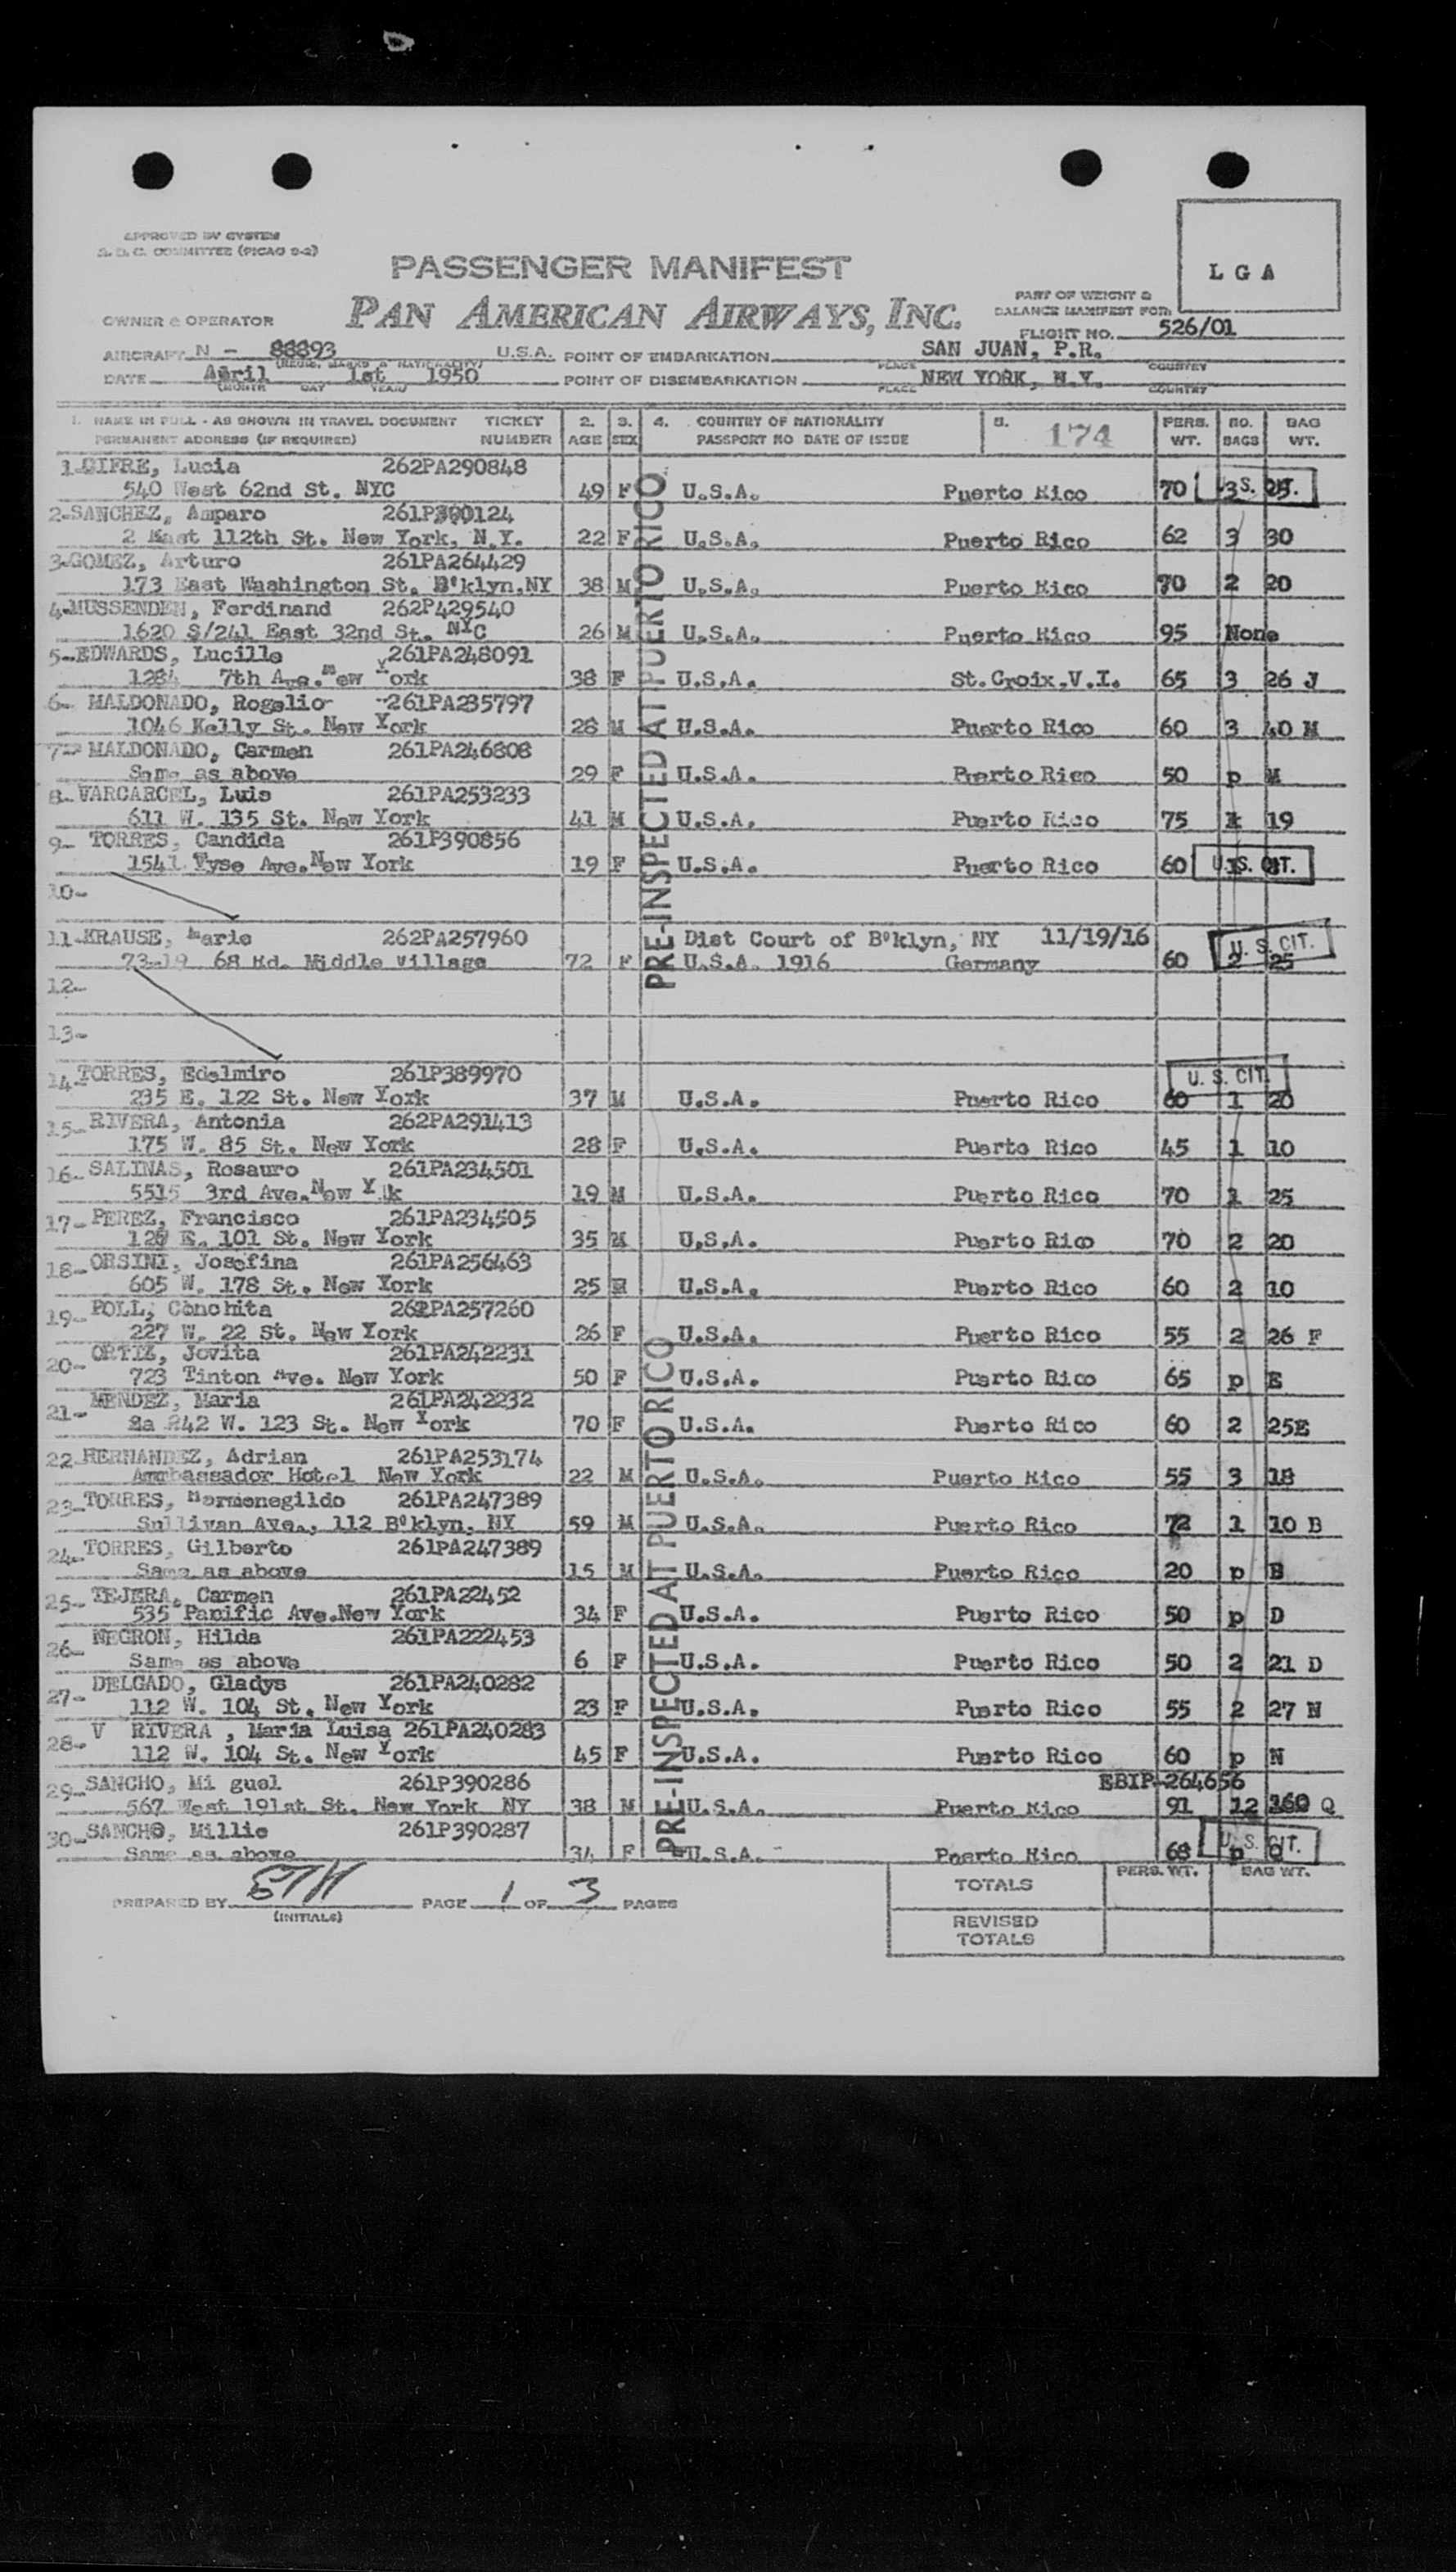 APPROVED BY SYSTEM
S. D. C. COMMITTEE (PICAO 9-2)
LGA
PASSENGER MANIFEST
PAN AMERICAN AIRWAYS, INC.
PART OF WEIGHT &
BALANCE MANIFEST FOR:
OWNER & OPERATOR
FLIGHT NO. 526/01
AIRCRAFT N - 88893 U.S.A. POINT OF EMBARKATION SAN JUAN, P.R.
(REGIS. MARKS & NATIONALITY) PLACE COUNTRY
DATE April 1st 1950 POINT OF DISEMBARKATION NEW YORK, N.Y.
(MONTH DAY YEAR) PLACE COUNTRY
1. NAME IN FULL - AS SHOWN IN TRAVEL DOCUMENT TICKET 2. 3. 4. COUNTRY OF NATIONALITY 5. 174 PERS. NO. BAG
PERMANENT ADDRESS (IF REQUIRED) NUMBER AGE SEX PASSPORT NO DATE OF ISSUE WT. BAGS WT.
1-CIFRE, Lucia 262PA290848
540 West 62nd St. NYC 49 F U.S.A. Puerto Rico 70 3 25 U.S. CIT.
2-SANCHEZ, Amparo 261P390124
2 East 112th St. New York, N.Y. 22 F U.S.A. Puerto Rico 62 3 30
3-GOMEZ, Arturo 261PA264429
173 East Washington St. B'klyn,NY 38 M U.S.A. Puerto Rico 70 2 20
4-MUSSENDEN, Ferdinand 262P429540
1620 S/241 East 32nd St. NYC 26 M U.S.A. Puerto Rico 95 None
5-EDWARDS, Lucille 261PA248091
1284 7th Ave. New York 38 F U.S.A. St.Croix,V.I. 65 3 26 J
6- MALDONADO, Rogelio 261PA235797
1046 Kelly St. New York 28 M U.S.A. Puerto Rico 60 3 40 M
7- MALDONADO, Carmen 261PA246808
Same as above 29 F U.S.A. Puerto Rico 50 p M
8- VARCARCEL, Luis 261PA253233
611 W. 135 St. New York 41 M U.S.A. Puerto Rico 75 19
9- TORRES, Candida 261P390856
1541 Vyse Ave.New York 19 F U.S.A. Puerto Rico 60 U.S. CIT.
10-
11-KRAUSE, Marie 262PA257960 Dist Court of B'klyn, NY 11/19/16
73-19 68 Rd. Middle Village 72 F U.S.A. 1916 Germany 60 2 25 U.S. CIT.
12-
13-
14-TORRES, Edelmiro 261P389970 U. S. CIT.
235 E. 122 St. New York 37 M U.S.A. Puerto Rico 60 1 20
15- RIVERA, Antonia 262PA291413
175 W. 85 St. New York 28 F U.S.A. Puerto Rico 45 1 10
16- SALINAS, Rosauro 261PA234501
5515 3rd Ave.New Y k 19 M U.S.A. Puerto Rico 70 1 25
17- PEREZ, Francisco 261PA234505
E. 101 St. New York 35 M U.S.A. Puerto Rico 70 2 20
18- ORSINI, Josefina 261PA256463
605 W. 178 St. New York 25 U.S.A. Puerto Rico 60 2 10
19- POLL, Conchita 262PA257260
227 W. 22 St. New York 26 F U.S.A. Puerto Rico 55 2 26 F
20- ORTIZ, Jovita 261PA242231
723 Tinton Ave. New York 50 F U.S.A. Puerto Rico 65 p E
21- MENDEZ, Maria 261PA242232
242 W. 123 St. New York 70 F U.S.A. Puerto Rico 60 2 25E
22-HERNANDEZ, Adrian 261PA253174
Ambassador Hotel New York 22 M U.S.A. Puerto Rico 55 3 18
23-TORRES, Hermenegildo 261PA247389
Sullivan Ave., 112 B'klyn, NY 59 M U.S.A. Puerto Rico 72 1 10 B
24-TORRES, Gilberto 261PA247389
Same as above 15 M U.S.A. Puerto Rico 20 p B
25- TEJERA, Carmen 261PA22452
535 Pacific Ave.New York 34 F U.S.A. Puerto Rico 50 p D
26- NEGRON, Hilda 261PA222453
Same as above 6 F U.S.A. Puerto Rico 50 2 21 D
27- DELGADO, Gladys 261PA240282
112 W. 104 St. New York 23 F U.S.A. Puerto Rico 55 2 27 N
28- V RIVERA , Maria Luisa 261PA240283
112 W. 104 St. New York 45 F U.S.A. Puerto Rico 60 p N
29-SANCHO, Mi guel 261P390286 EBIP-264656
567 West 191st St. New York NY 38 M U.S.A. Puerto Rico 91 12 160 Q
30-SANCHO, Millie 261P390287
Same as above 34 F U.S.A. Puerto Rico 68 p Q U. S. CIT.
PRE-INSPECTED AT PUERTO RICO
PRE-INSPECTED AT PUERTO RICO
PREPARED BY ETH PAGE 1 OF 3 PAGES
(INITIALS)
TOTALS PERS. WT. BAG WT.
REVISED
TOTALS